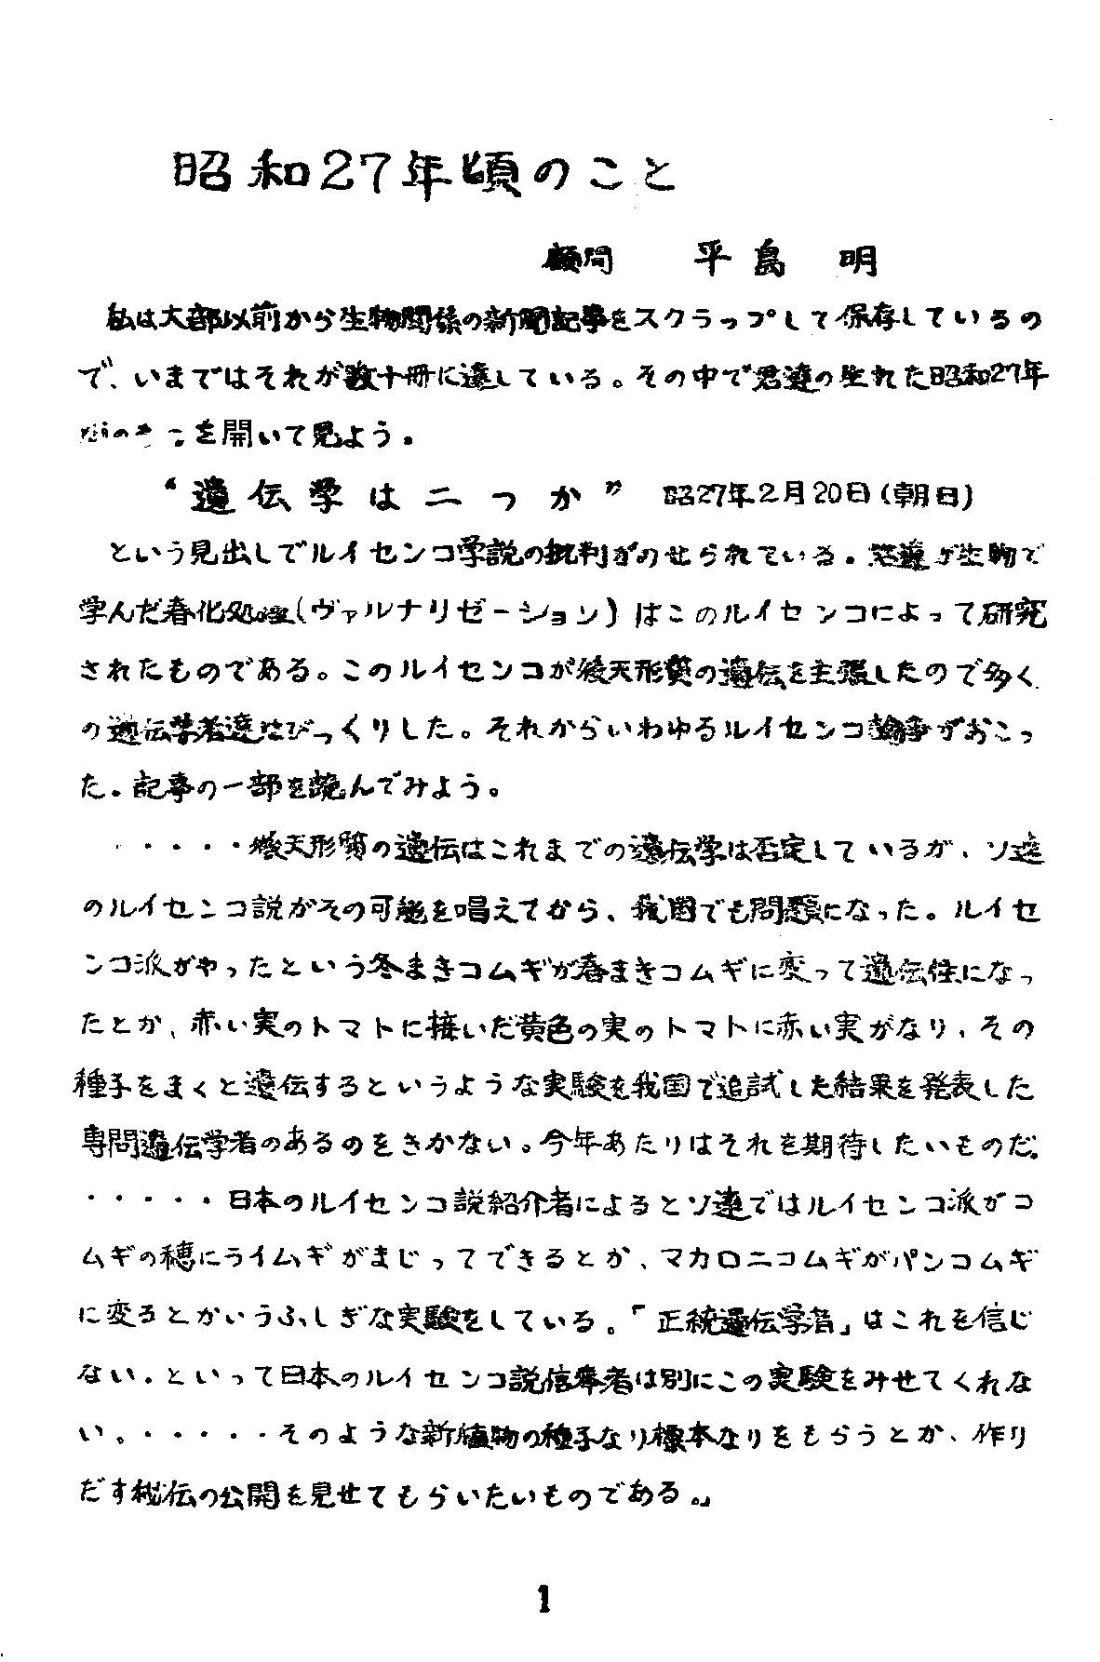 昭和27年頃のこと
顧問　平島　明
私は大部以前から生物関係の新聞記事をスクラップして保存しているの
で、いまではそれが数十冊に達している。その中で君達の生れた昭和27年
を開いて見よう。
“遺伝学は二つか” 昭27年2月20日(朝日)
という見出しでルイセンコ学説の批判がのせられている。君達が生物で
学んだ春化処理(ヴァルナリゼーション)はこのルイセンコによって研究
されたものである。このルイセンコが後天形質の遺伝を主張したので多く
の遺伝学者達はびっくりした。それからいわゆるルイセンコ論争がおこっ
た。記事の一部を読んでみよう。
・・・・・後天形質の遺伝はこれまでの遺伝学は否定しているが、ソ連
のルイセンコ説がその可能を唱えてから、我国でも問題になった。ルイセ
ンコ派がやったという冬まきコムギが春まきコムギに変って遺伝性になっ
たとか、赤い実のトマトに接いだ黄色の実のトマトに赤い実がなり、その
種子をまくと遺伝するというような実験を我国で追試した結果を発表した
専問遺伝学者のあるのをきかない。今年あたりはそれを期待したいものだ。
・・・・・日本のルイセンコ説紹介者によるとソ連ではルイセンコ派がコ
ムギの穂にライムギがまじってできるとか、マカロニコムギがパンコムギ
に変るとかいうふしぎな実験をしている。「正統遺伝学者」はこれを信じ
ない。といって日本のルイセンコ説信奉者は別にこの実験をみせてくれな
い。・・・・・そのような新植物の種子なり標本なりをもらうとか、作り
だす秘伝の公開を見せてもらいたいものである。」
1